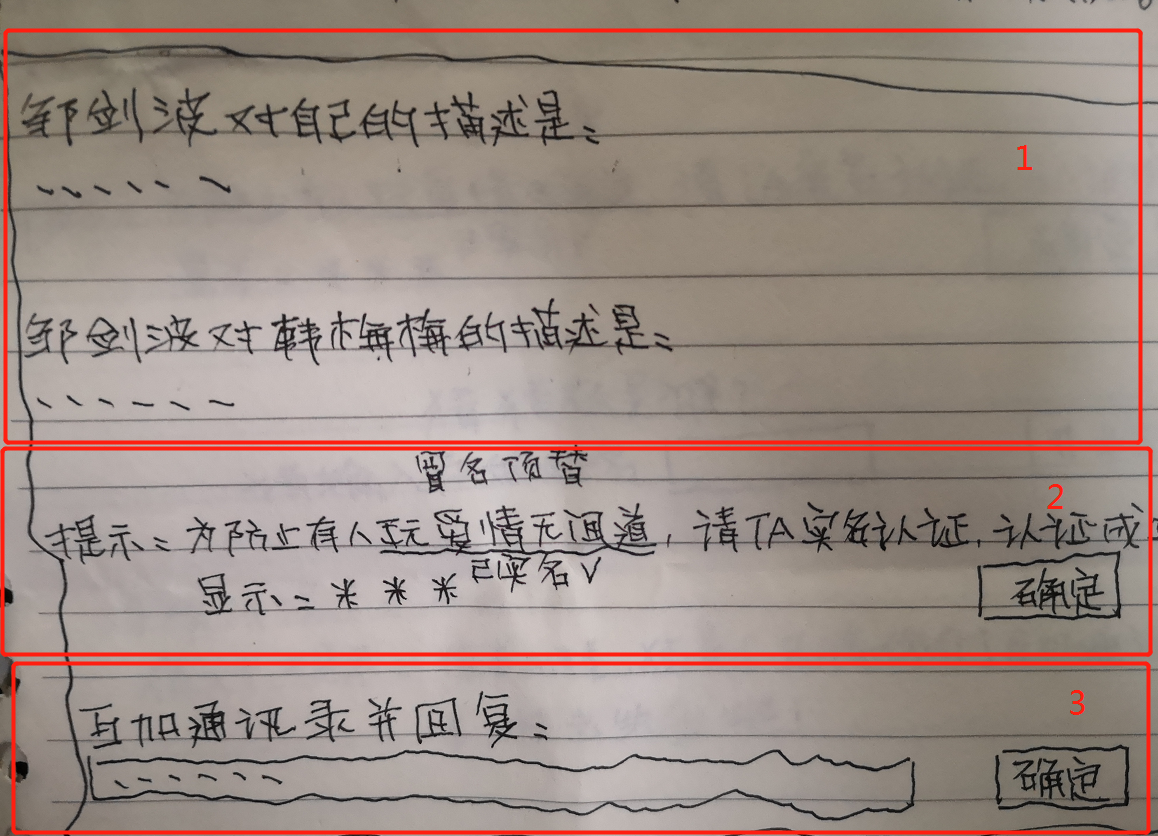 邹剑波对自己的描述是:
1
、、、、、、
邹剑波对韩梅梅的描述是:
、、、、、、
冒名顶替
2
提示:为防止有人玩爱情无间道,请TA实名认证,认证成
已实名√
显示:* * *
确定
互加通讯录并回复:
3
、、、、、、
确定